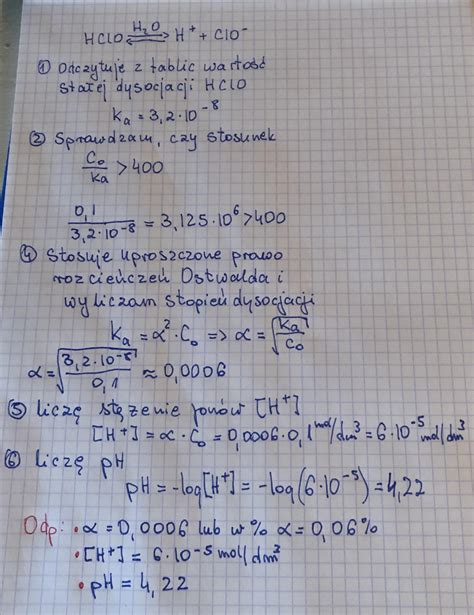 HClO ⇌ H₂O H⁺ + ClO⁻
① Odczytuję z tablic wartość
stałej dysocjacji HClO
Ka = 3,2·10⁻⁸
② Sprawdzam, czy stosunek
C₀/Ka > 400
0,1/3,2·10⁻⁸ = 3,125·10⁶ > 400
④ Stosuję uproszczone prawo
rozcieńczeń Ostwalda i
wyliczam stopień dysocjacji
Ka = α²·C₀ => α = √(Ka/C₀)
α = √(3,2·10⁻⁸/0,1) ≈ 0,0006
⑤ liczę stężenie jonów [H⁺]
[H⁺] = α·C₀ = 0,0006·0,1 mol/dm³ = 6·10⁻⁵ mol/dm³
⑥ liczę pH
pH = -log[H⁺] = -log(6·10⁻⁵) = 4,22
Odp: • α = 0,0006 lub w % α = 0,06%
• [H⁺] = 6·10⁻⁵ mol/dm³
• pH = 4,22